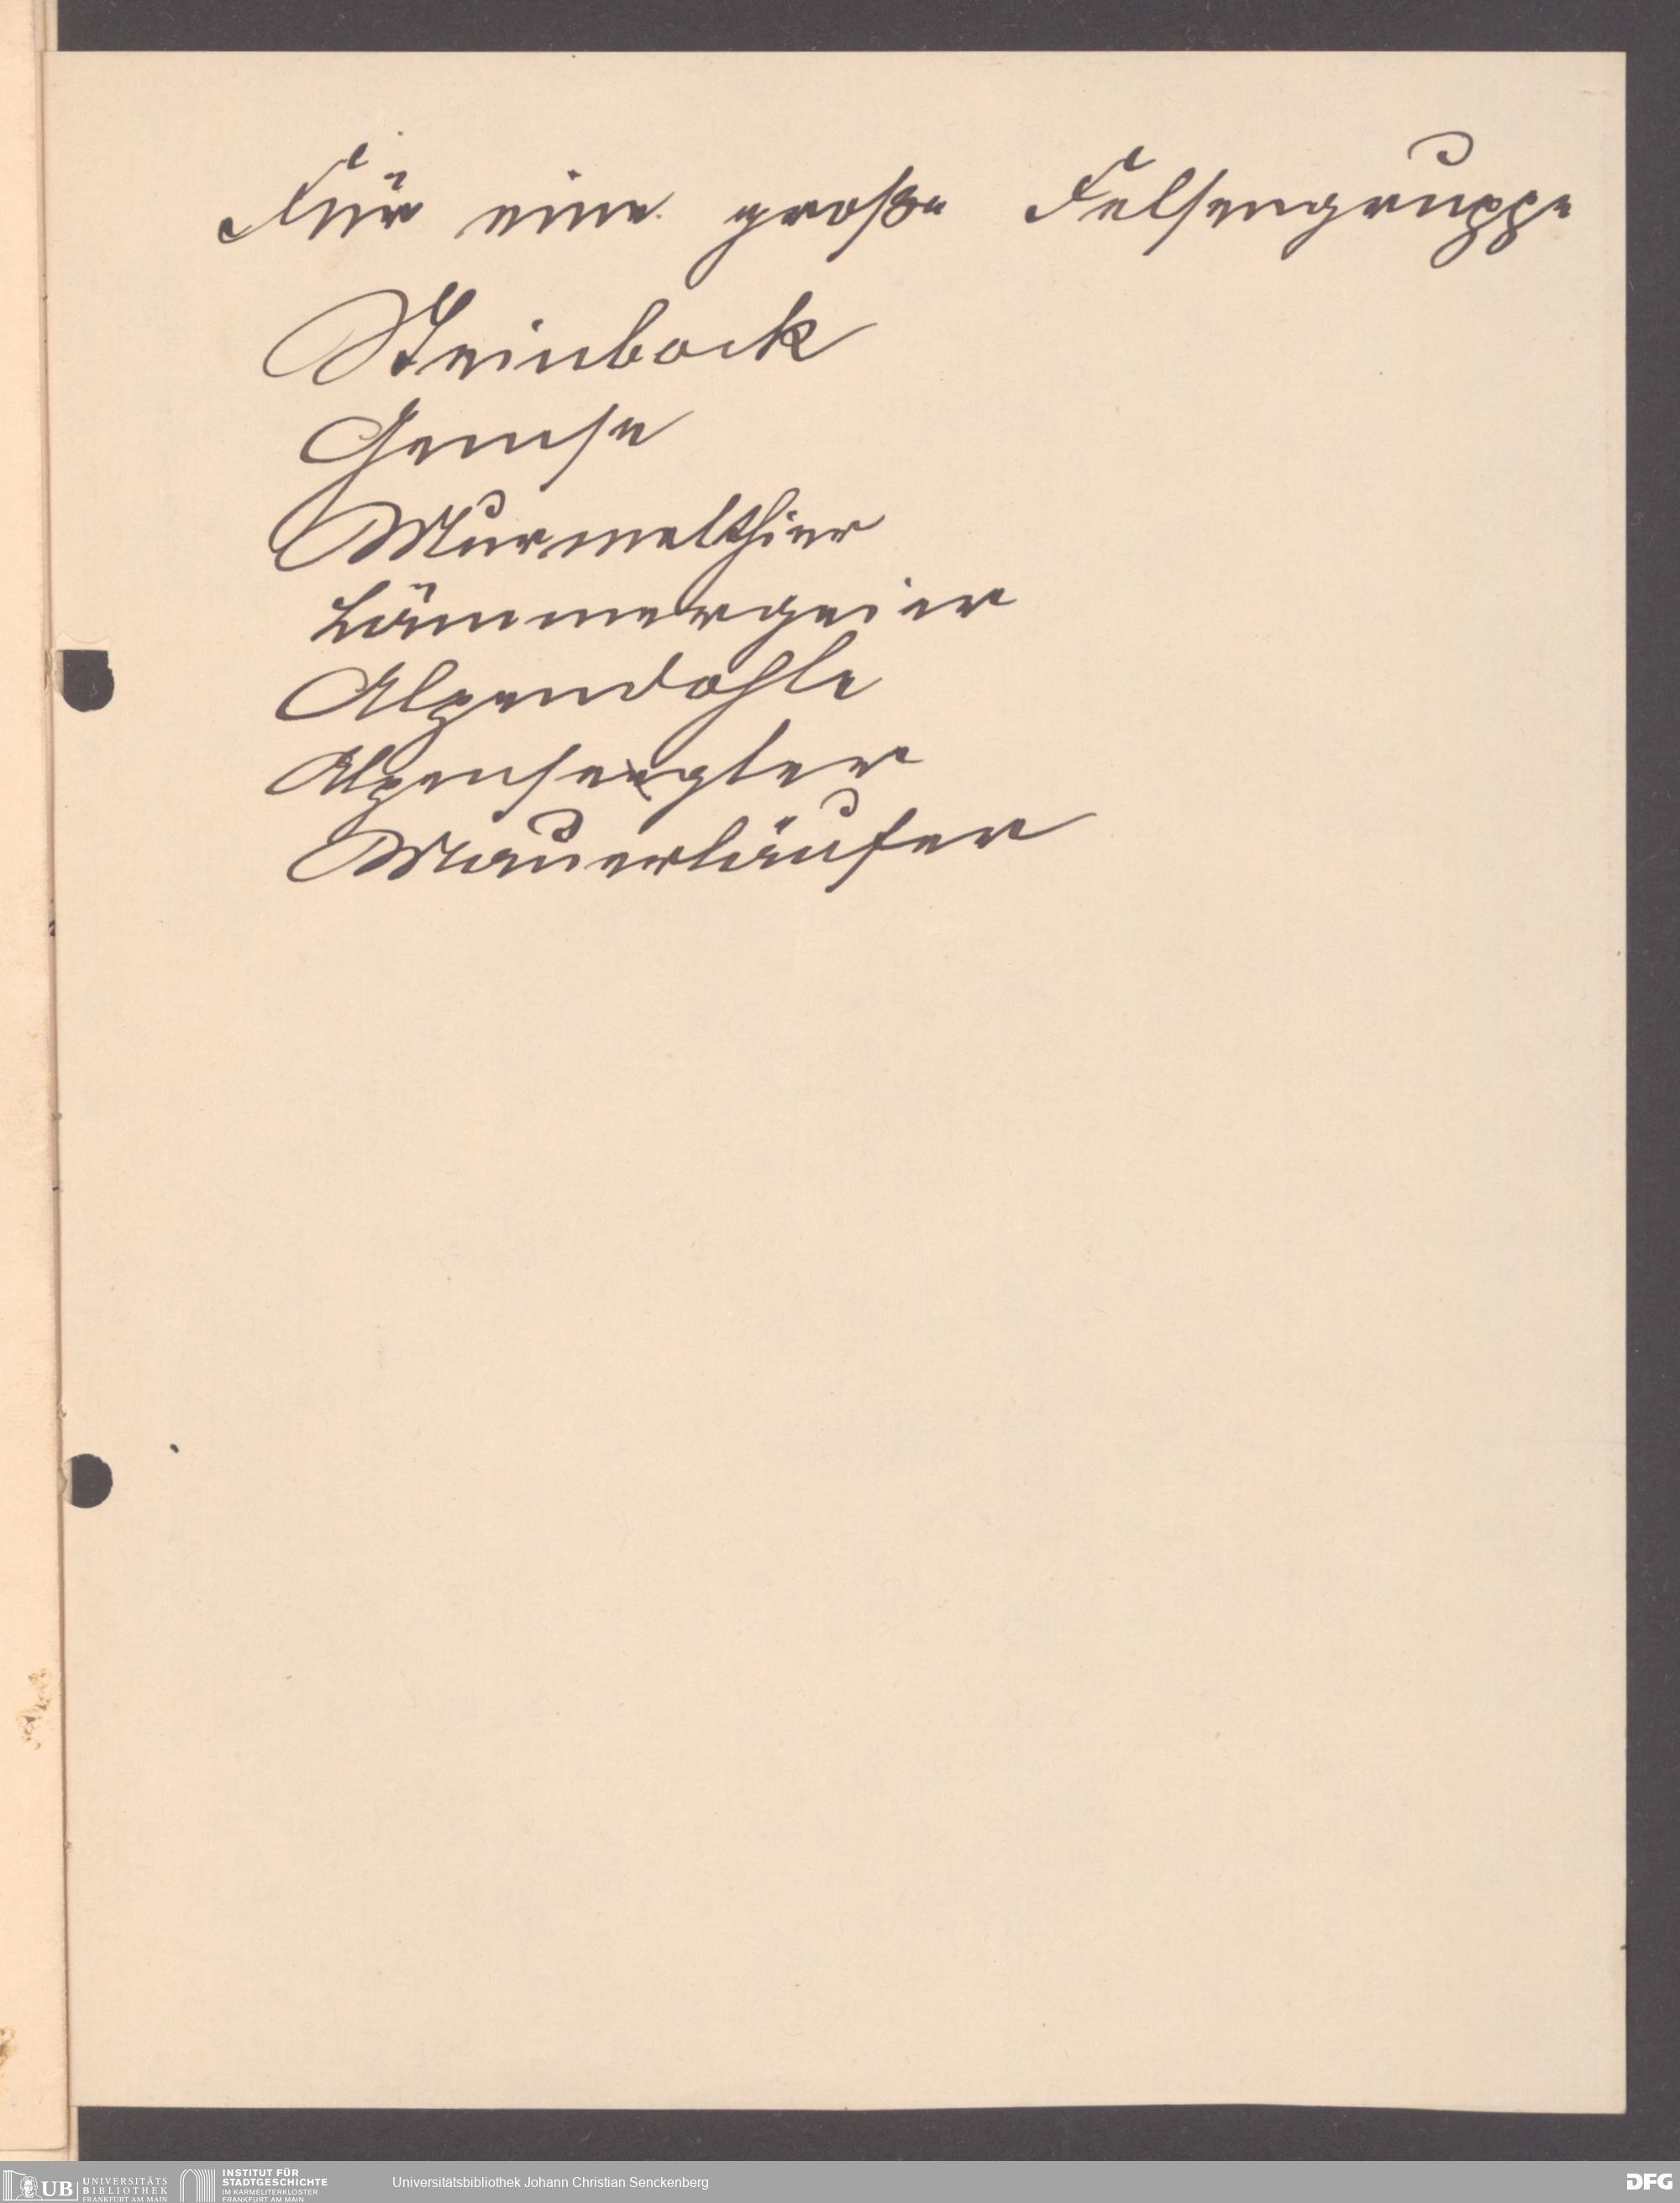 Für eine große Felsengruppe
Steinbock
Gemse
Murmelthier
Lämmergeier
Alpendohle
Alpensegler
Mauerläufer
UB UNIVERSITÄTS
BIBLIOTHEK
FRANKFURT AM MAIN
INSTITUT FÜR
STADTGESCHICHTE
IM KARMELITERKLOSTER
FRANKFURT AM MAIN
Universitätsbibliothek Johann Christian Senckenberg
DFG